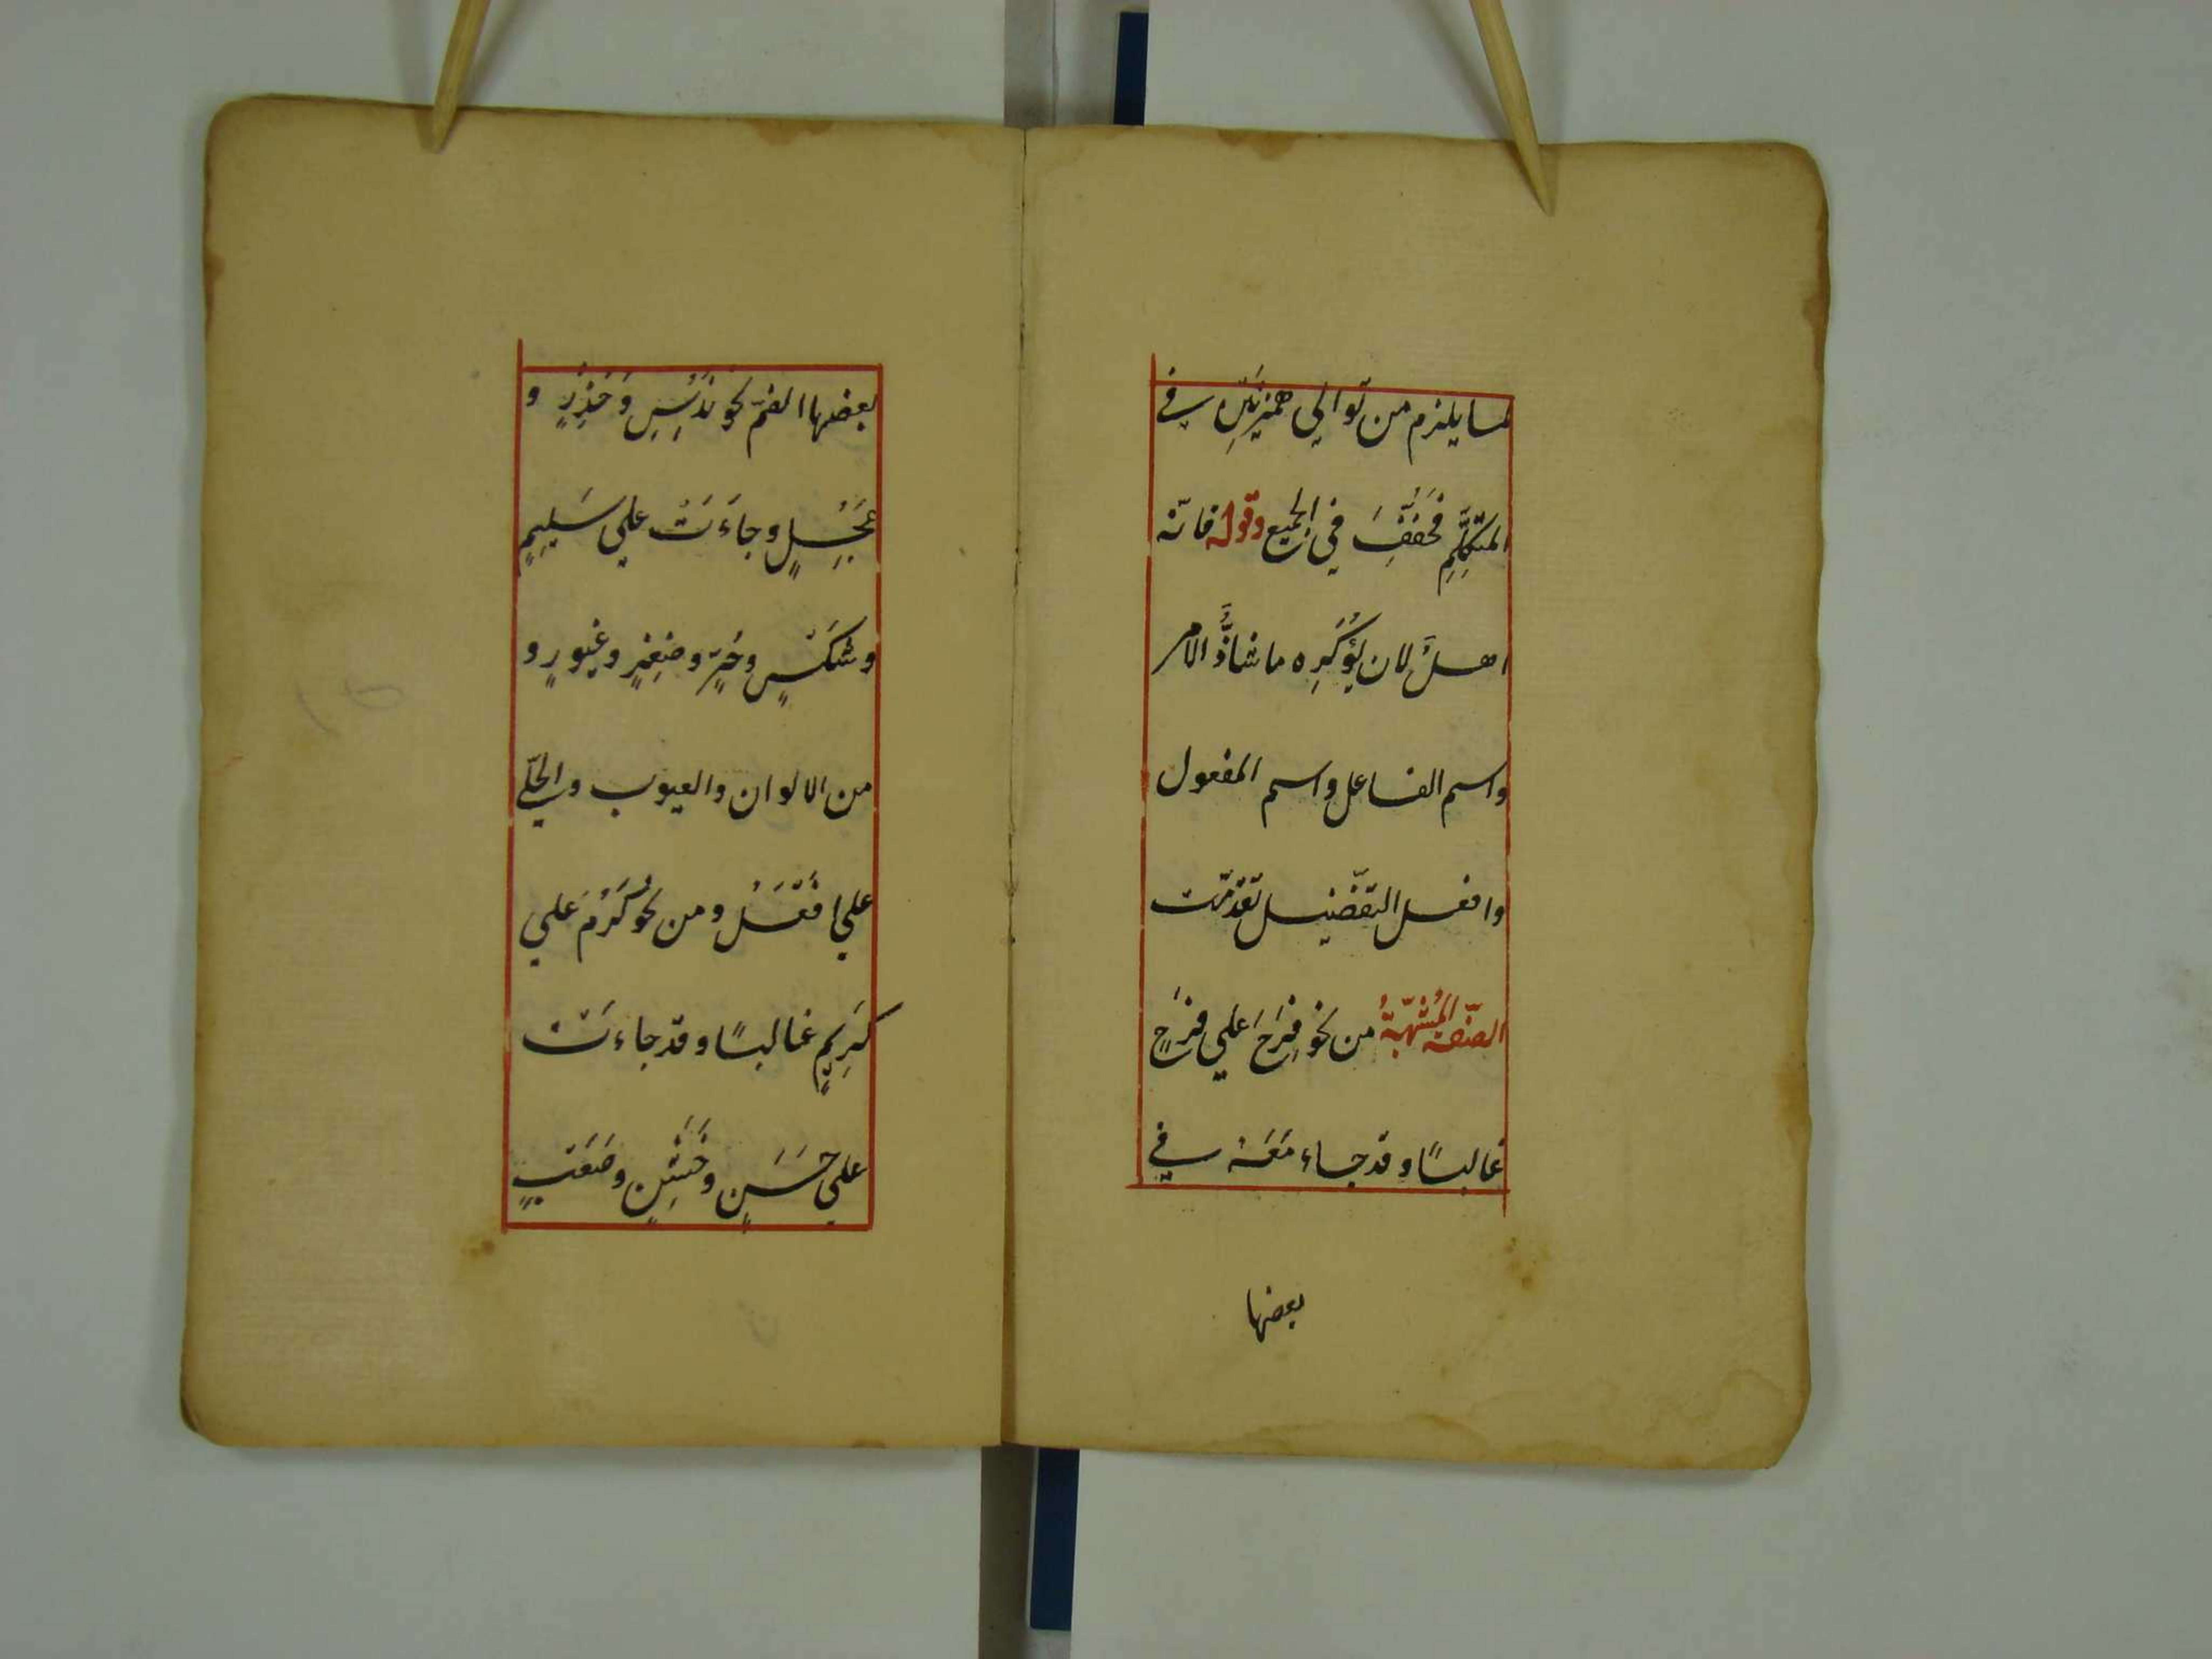 لما يلزم من توالي همزتَين في
المتكلِّمِ فخُفِّفَ في الجميع وقوله فانّه
اهلٌ لان يُؤَكْرِه ما شاذٌّ الامر
واسم الفاعل واسم المفعول
وافعل التفضيل تقدّمت
الصّفة المُشبّهةُ من نحو فرِحَ علي فرِحٍ
غالبًا وقد جاء مَعَهُ في
بعضها
بعضها الضمّ نحو نَدُسٍ وَحَذُرٍ و
عَجُلٍ وجاءَتْ علي سَلِيمٍ
وشَكْسٍ وحُرٍّ وصِفْرٍ وغيورٍ و
من الالوان والعيوب والحلي
علي افْعَلُ ومن نحو كَرُمَ علي
كَرِيمٍ غالبًا وقد جاءَتْ
علي حَسَنٍ وخَشِنٍ وصَعْبٍ